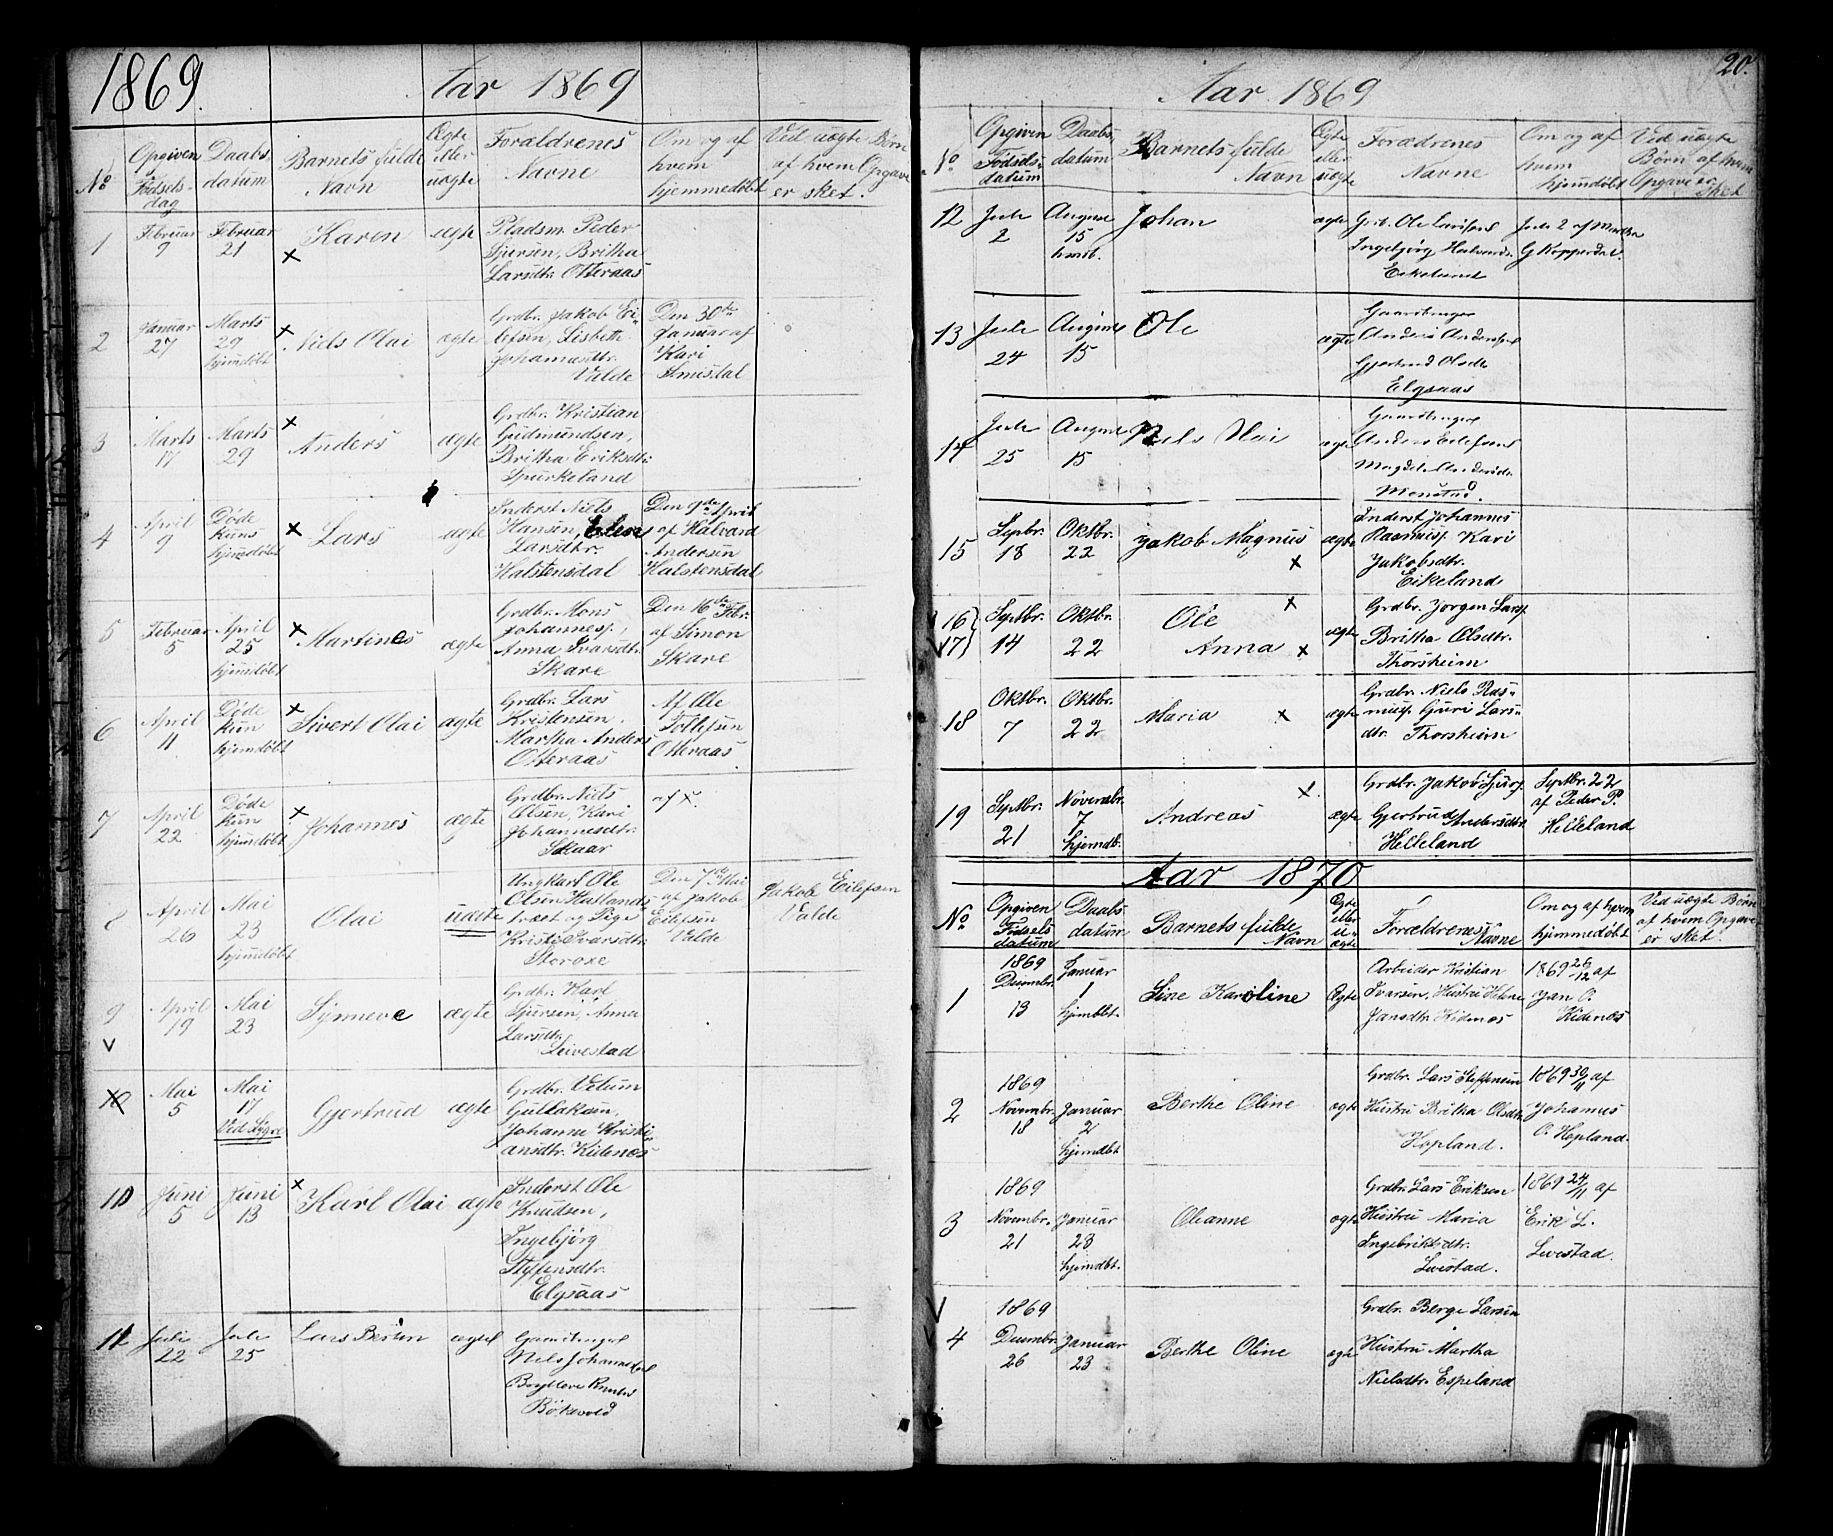 1869.
Aar 1869
No
Opgiven Fødsels-dag
Daabs, datum
Barnets fulde Navn
Ægte eller uægte
Forældrenes Navne
Om og af hvem hjemmedøbt
Ved uægte Børn af hvem Opgave er sket.
1
Februar 9
Februar 21
Karen
ægte
Pladsm. Peder
Sjursen, Britha
Larsdtr. Otteraas
2
Januar 27
Marts 29 hjemdöbt
Niels Olai
ægte
Grdbr. Jakob Ei-
lefsen, Lisbeth
Johannesdtr.
Valde
Den 30te
Januar af
Kari
3
Marts 17
Marts 29
Anders
ægte
Grdbr. Kristian
Gudmundsen,
Britha Eriksdtr.
Spurkeland
4
April 9
Døde kuns hjemdøbt
Lars
ægte
Inderst Niels
Hansen, Elen
Larsdtr.
Halstensdal
Den 9de April
af Halvard
Andersen
Halstensdal
5
Februar 5
April 25 hjemdöbt
Martines
ægte
Grdbr. Mons
Johannesp.,
Anna Ivarsdtr.
Skare
Den 16de Febr.
af Simon
Skare
6
April 11
Døde kun hjemdöbt
Sivert Olai
ægte
Grdbr. Lars
Kristensen.
Martha Anders
Otteraas
Af Ole
Tollefsen
Otteraas
7
April 22
Døde kun hjemdöbt
Johannes
ægte
Grdbr. Niels
Olsen, Kari
Johannesdtr.
Skaar
af x.
8
April 26
Mai 23 hjemdöbt
Olai
uægte
Ungkarl Ole
Olsen Hatlands-
træet og Pige
Kristi Ivarsdtr.
Storoxe
Den 7de Mai
af Jakob
Eilefsen
Valde
Jakob Eilefsen
Valde
9
April 19
Mai 23
Synneve
ægte
Grdbr. Karl
Sjursen, Anna
Larsdtr.
Leivestad
10
Mai 5
Mai 17 Ved Lygre
Gjertrud
ægte
Grdbr. Vetum
Gullaksen,
Johanne Kristi-
ansdtr. Kidenes
10
Juni 5
Juni 13
Karl Olai
ægte
Inderst Ole
Knudsen,
Ingebjörg
Steffensdtr.
Elysaas
11
Juli 22
Juli 25
Lars Berten
ægte
Nels Johannes
20.
Aar 1869
No
Opgiven Fødsels-datum
Daabs, datum
Barnets fulde Navn
Ægte eller uægte
Forædrenes Navne
Om og af hvem hjemdöbt
Ved uægte Börn af hvem Opgave er sket
12
Juli 2
August 15 hmdb.
Johan
ægte
Grb. Ole Larsens
Ingebjørg Halvords.
Eikeland
Juli 2 af Martha
G Kopperdal.
13
Juli 24
August 15
Ole
ægte
Gaardbruger
Anders Andersen
Gjertrud Olsdtr
Elysaas
14
Juli 25
August 15
Nels Olai
ægte
Gaardbruger
Anders Eilefsens
Magdela Andersdtr.
Monstad.
15
Septbr. 18
Oktbr. 22
Jakob Magnus
ægte
Inderst Johannes
Rasmusp. Kari
Jakobsdtr.
Eikeland
16
17
Septbr. 14
Oktbr. 22
Ole
Anna
ægte
Grdbr. Jorgen Larsp
Britha Olsdtr.
Thorsheim
18
Oktbr. 7
Oktbr. 22
Maria
ægte
Grdbr. Niels Ras-
musp. Guri Lars-
dtr. Thorsheim
19
Septbr. 21
November 7 hjemdb.
Andreas
ægte
Grdbr. Jakob Sjursp
Gjertrud Andersdtr.
Helleland
Septbr. 22
af Peder P.
Helleland
Aar 1870
No
Opgiven Fødsels datum
Daabs datum
Barnets fulde Navn
Ægte eller u-ægte
Forældrenes Navne
Om og af hvem hjemmedøbt
Ved uægte Børn af hvem Opgave er sket.
1
1869 Dcembr. 13
Januar 1 hjemdbt.
Line Karoline
Ægte
Arbeider Kristian
Ivarsen, Hustru Helene
Jansdtr. Kidenes
1869 26/12 af
Jan O.
Kidenes
2
1869 Novembr. 18
Januar 2 hjemdbt
Berthe Oline
ægte
Grdbr. Lars Steffensen
Hustru Britha Olsdtr.
Hopland.
1869 30/11 af
Johannes
O. Hopland.
3
1869 Novembr. 21
Januar 23 hjemdbt.
Oleanne
ægte
Grdbr. Lars Eriksen
Hustru Maria
Ingebriktsdtr.
Livestad.
1869 24/11 af
Erik L.
Livestad.
4
1869 Decembr. 26
Januar 23
Berthe Oline
ægte
Grdbr. Berge Larsen
Hustru Martha
Nielsdtr. Espeland